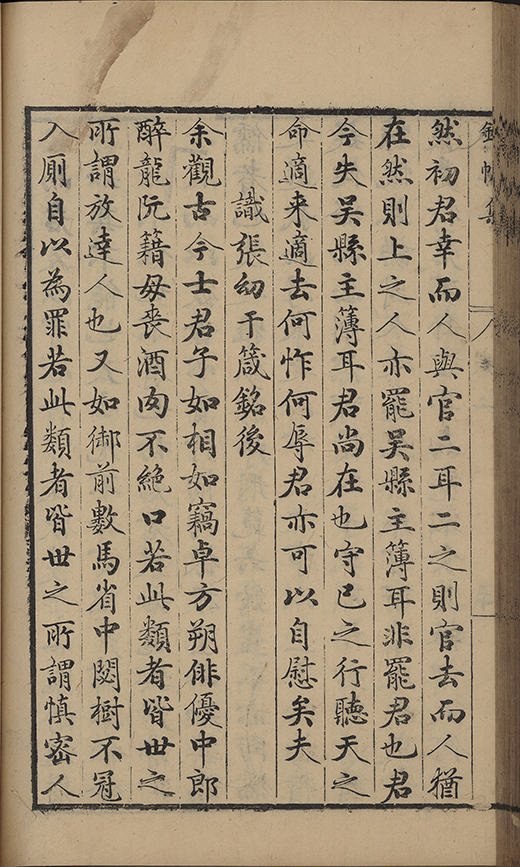 錦帆集
然初君幸而人與官二耳二之則官去而人猶
在然則上之人亦罷吳縣主簿耳非罷君也君
今失吳縣主簿耳君尚在也守已之行聽天之
命適来適去何怍何辱君亦可以自慰矣夫
識張幼于箴銘後
余觀古今士君子如相如竊卓方朔俳優中郎
醉龍阮籍母喪酒肉不絶口若此類者皆世之
所謂放達人也又如御前數馬省中閟樹不冠
入厠自以為罪若此類者皆世之所謂慎宻人